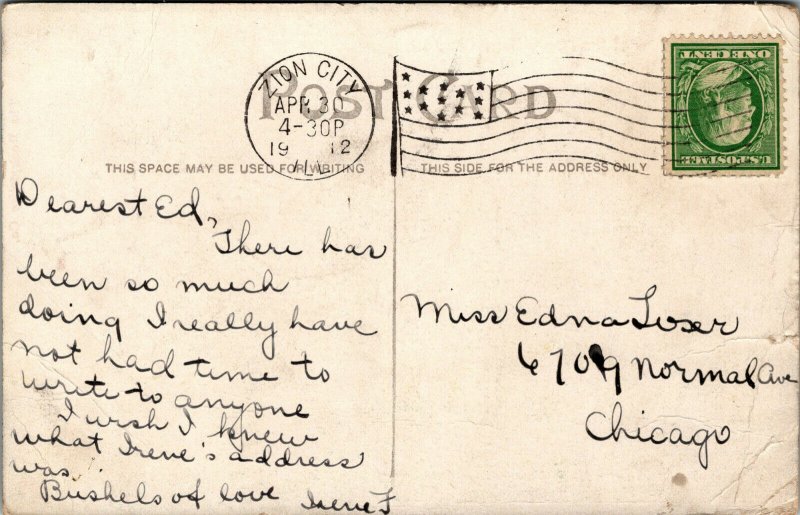 POST CARD
ZION CITY
APR 30
4-30P
19 12
ILL
ONE CENT
U.S. POSTAGE
THIS SPACE MAY BE USED FOR WRITING
THIS SIDE FOR THE ADDRESS ONLY
Dearest Ed,
There has
been so much
doing I really have
not had time to
write to anyone
I wish I knew
what Irene's address
was.
Bushels of love Irene F
Miss Edna
6709 Normal Ave
Chicago